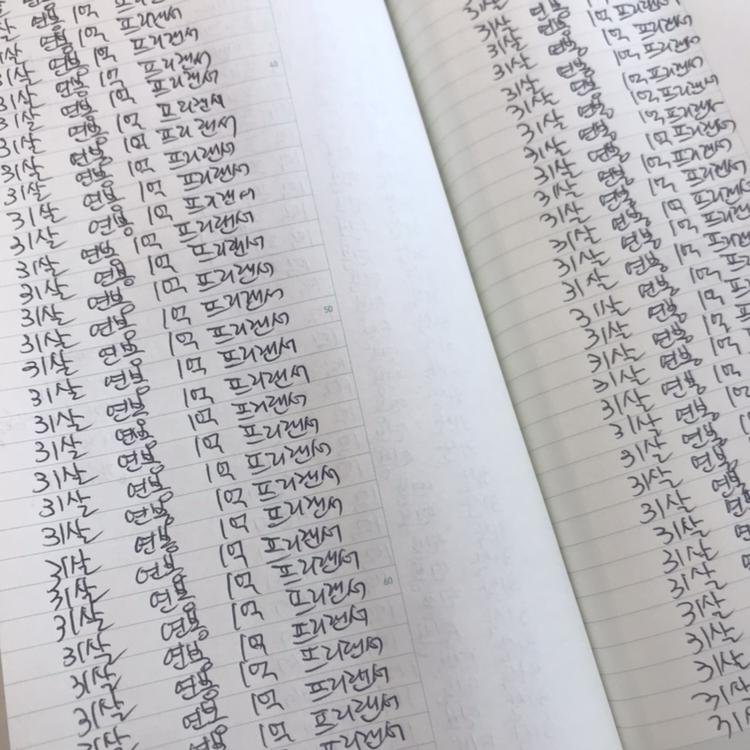 연봉 1억 프리랜서
살 연봉 1억 프리랜서
살 연봉 1억 프리랜서
31살 연봉 1억 프리랜서
31살 연봉 1억 프리랜서
31살 연봉 1억 프리랜서
31살 연봉 1억 프리랜서
31살 연봉 1억 프리랜서
31살 연봉 1억 프리랜서
31살 연봉 1억 프리랜서
31살 연봉 1억 프리랜서
31살 연봉 1억 프리랜서
31살 연봉 1억 프리랜서
50
31살 연봉 1억 프리랜서
31살 연봉 1억 프리랜서
31살 연봉 1억 프리랜서
31살 연봉 1억 프리랜서
31살 연봉 1억 프리랜서
31살 연봉 1억 프리랜서
31살 연봉 1억 프리랜서
31살 연봉 1억 프리랜서
31살 연봉 1억 프리랜서
31살 연봉 1억 프리랜서
60
31살 연봉 1억 프리랜서
31살 연봉 1억 프리랜서
31살 연봉 1억 프리랜서
31살 연봉 1억 프리랜서
31살 연봉 1억 프리랜서
31살 연봉 1억 프리랜서
31살 연봉 1억 프리랜서
31살 연봉 1억 프리랜서
31살 연봉 1억 프리랜서
31살 연봉 1억 프리랜서
31살 연봉 1억 프리랜서
31살 연봉 1억 프리랜서
31살 연봉 1억 프리랜서
31살 연봉 1억 프리랜서
31살 연봉 1억 프리랜서
31살 연봉 1억 프리랜
31살 연봉 1억 프리
31살 연봉 1억 프
31살 연봉 1억
31살 연봉 1억
31살 연봉 1억
31살 연봉
31살 연봉
31살 연봉
31살 연
31살
31살
31살
31살
31살
31살